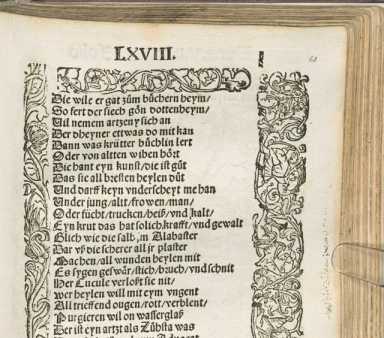 LXVIII.
61
Die wile er gat zům bůchern heym/
So fert der siech gön dottenheym/
Vil nemem artzeny sich an
Der dheyner ettwas do mit kan
Dann was krütter büchlin lert
Oder von altten wiben hört
Die hant eyn kunst/die ist gůt
Das sie all bresten heylen důt
Vnd darff keyn vnderscheyt me han
Vnder jung/alt/frowen/man/
Oder fücht/trucken/heiß/vnd kalt/
Eyn krut das hat solich krafft/vnd gewalt
Glich wie die salb/in Alabaster
Dar vß die scherer all jr plaster
Machen/all wunden heylen mit
Es sygen geswär/stich/bruch/vnd schnit
Her Cucule verloßt sie nit/
wer heylen will mit eym vngent
All trieffend ougen/rott/verblent/
Purgieren wil on wasserglaß
Der ist eyn artzt als Zůhsta was